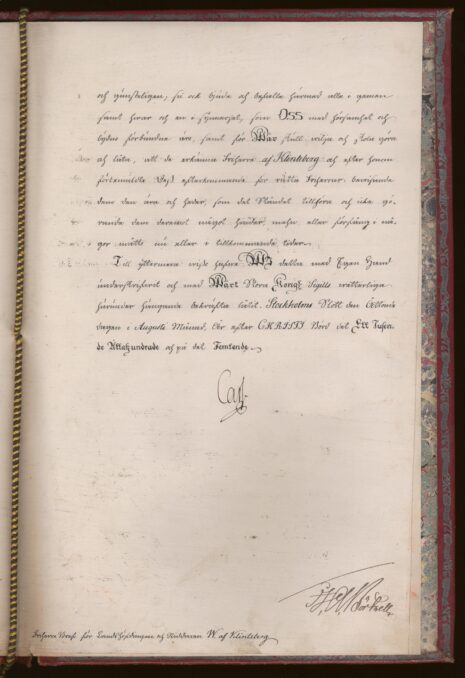 och gunsteligen, så ock bjude och befalle härmed alla i gemen
samt hvar och en i synnerhet, som OSS med hörsamhet och
lydno förbundne äro, samt för Wår skull, vilja och skola göra
och låta, att de erkänna Friherre af Klinteberg och efter honom
förbemälte Dess efterkommande för rätta Friherrar, bevisande
dem den ära och heder, som det Ståndet tillhöra och icke gö-
rande dem deremot något hinder, mehn eller förfång i nå-
gor måtto nu eller i tillkommande tider.
Till yttermera visso hafve Wi detta med Egen Hand
underskrifvit och med Wårt Stora Kongl Sigills vetterliga
härunder hängande bekräfta låtit. Stockholms Slott den
dagen i Augusti Månad, År efter CHRISTI Börd det Ett Tusen-
de Åttahundrade och på det Femtonde.
Carl
Friherre Bref för Landshöfdingen och Riddaren W. af Klinteberg